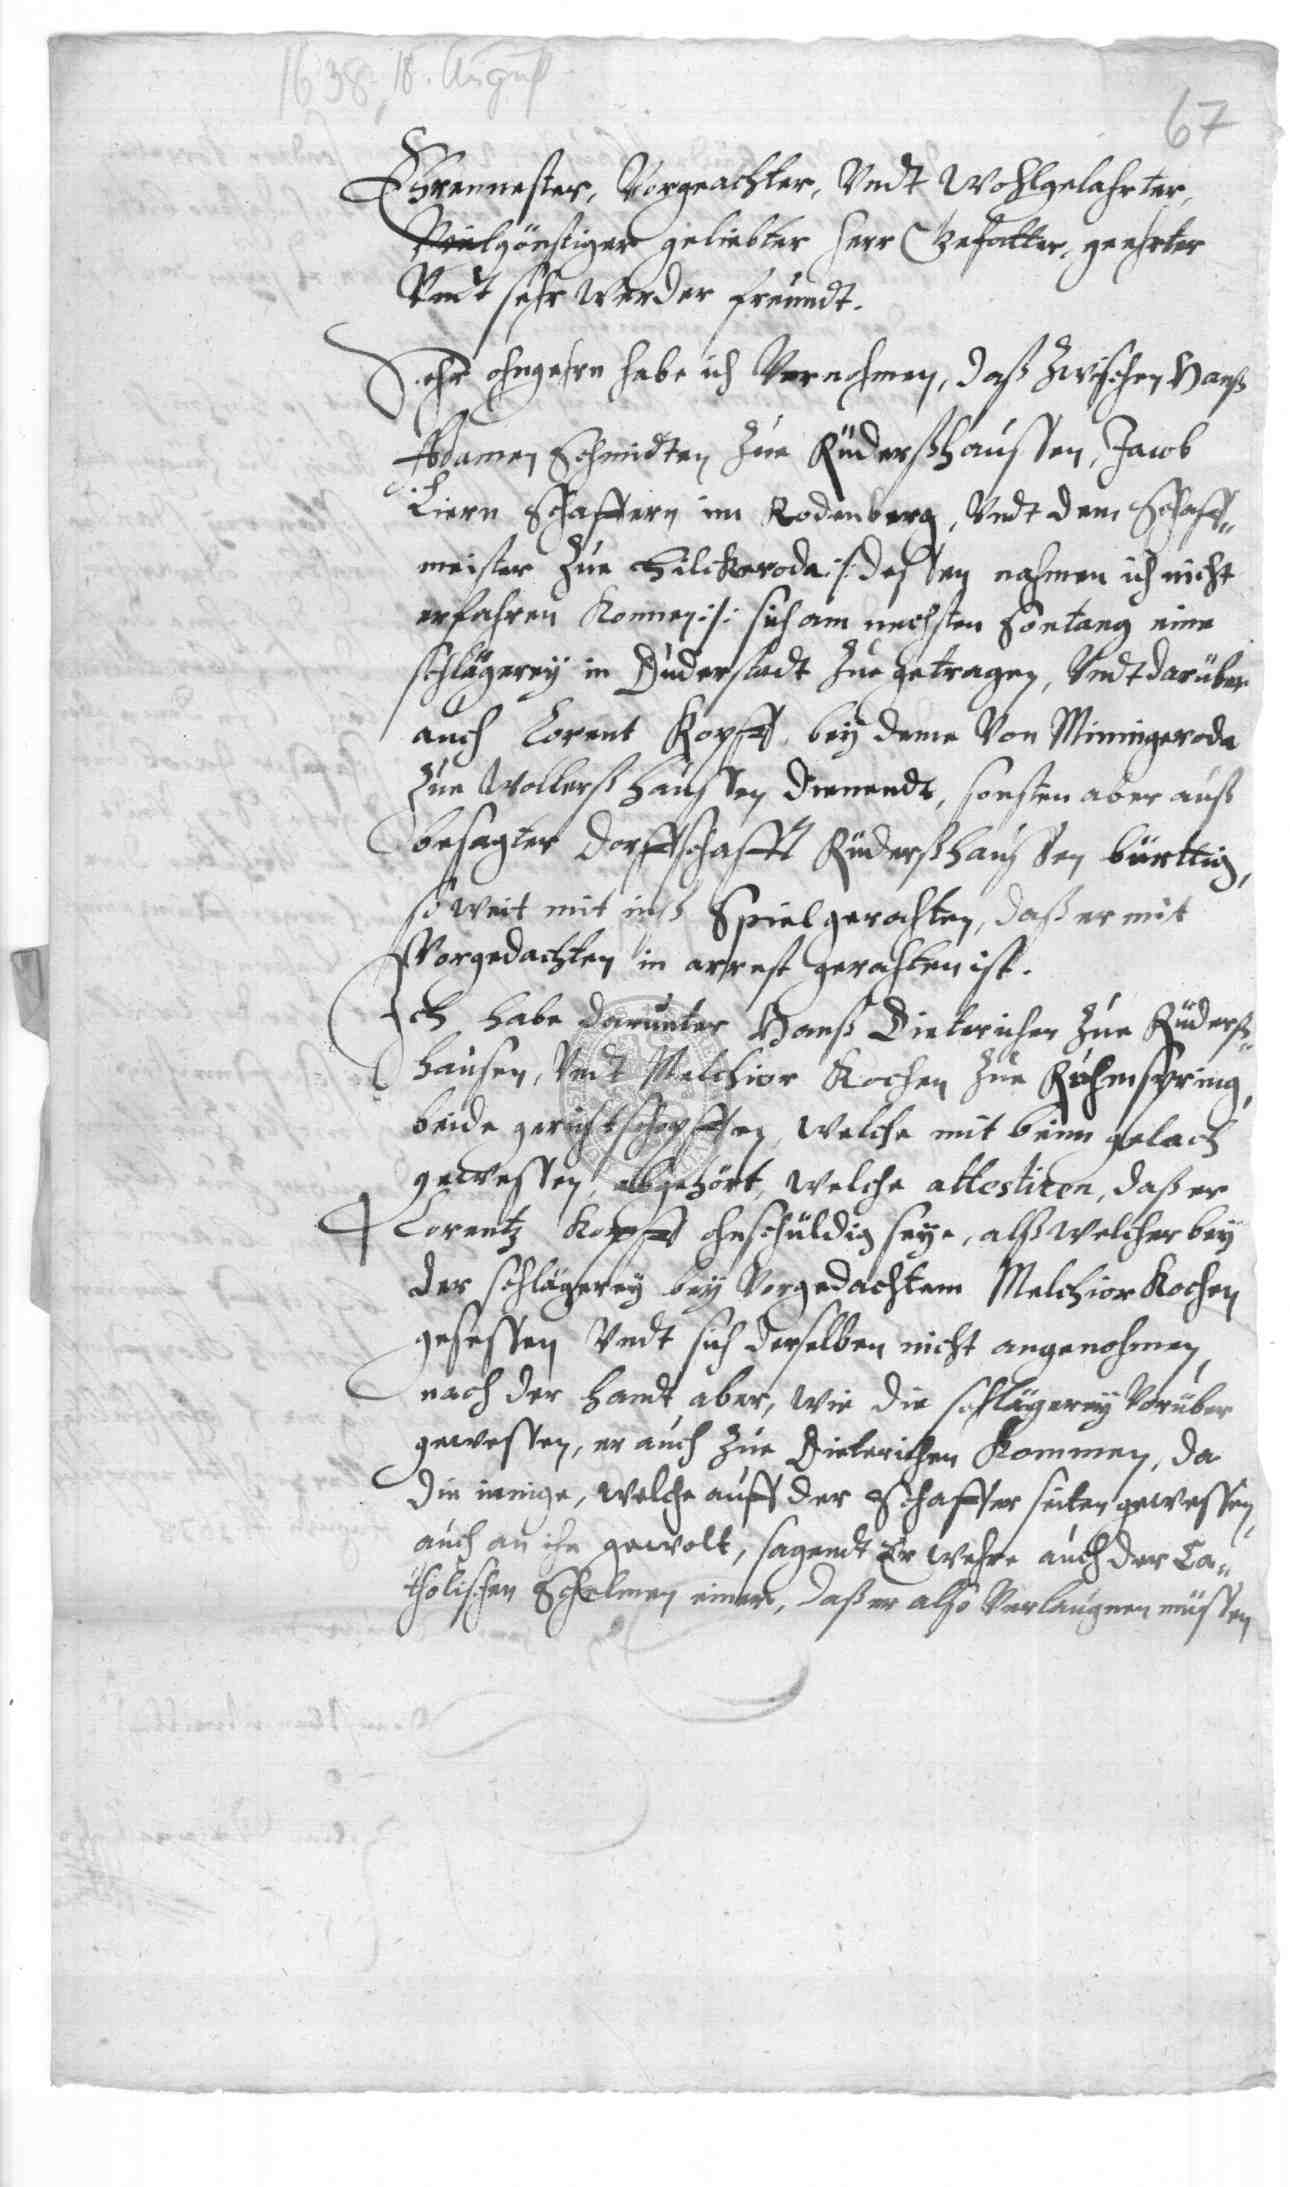 1638, 18. August
67
Ehrenvester, Vorgeachter, Vndt Wohlgelahrter,
Vielgönstiger geliebter Herr Gefatter, geehrter
Vndt sehr werder freundt.
Sehr ohngern habe ich Vernohmen, daß zwischen Hanß
Adamen Schmidten zue Rüderßhaussen, Jacob
Schäffern im Rodenberg, Vndt dem Schaff„
meister zue Hilckeroda :/: dessen nahmen ich nicht
erfahren Konnen :/: sich am nechsten Sontang eine
schlägereÿ in Duderstadt zue getragen, Vndt darüber
auch Lorent Kopff, beÿ deme Von Minnigeroda
zue Wollerßhaussen dienendt, sonsten aber auß
besagter dorffschafft Rüderßhaussen bürttig,
so weit mit inß Spiel gerahten, daß er mit
Vorgedachten in arrest gerahten ist.
Ich habe darunter Hanß Dieterichen zue Rüderß„
hausen, Vndt Melchior Kochen zue Ruhmspring,
beide gerichtschöpffen, welche mit beim gelach
gewessen, abgehört, welche attestiren, daß er
Lorentz Kopff ohnschüldig seye, alß welcher beÿ
der schlägereÿ beÿ Vorgedachtem Melchior Kochen
gesessen Vndt sich derselben nicht angenohmen,
nach der handt aber, wie die schlägereÿ Vorüber
gewessen, er auch zue Dieterichen Kommen, da
die ienige, welche auff der Schäffer seiten gewessen,
auch an ihn gewolt, sagendt Er wehre auch der Ca„
tholischen Schelmen einer, daß er also Verlaugnen müssen